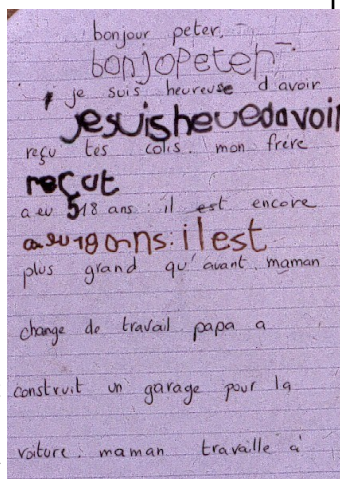 bonjour peter.
bonjopeter
je suis heureuse d'avoir
jesuisheuedavoir
reçu tes colis. mon frère
reçut
a eu 518 ans : il est encore
a eu 19 ans: il est
plus grand qu'avant. maman
change de travail papa a
construit un garage pour la
voiture. maman travaille à